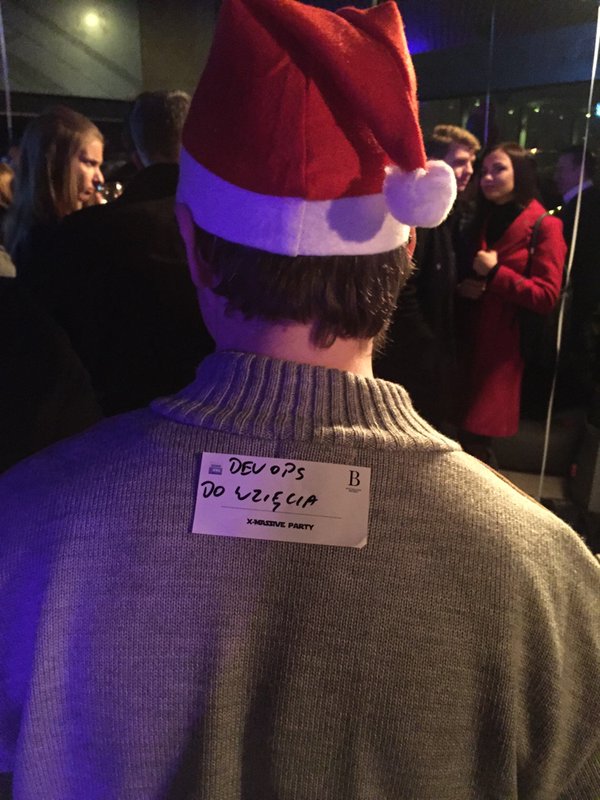 DEVOPS
B
DO WZIĘCIA
X-MASSIVE PARTY